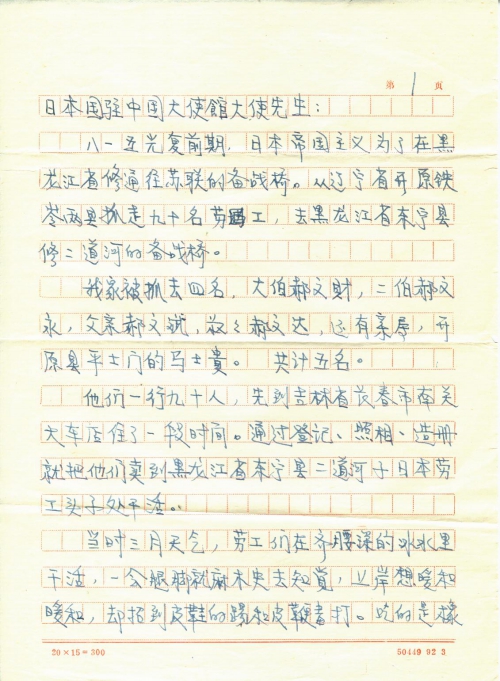 第 1 页
日本国驻中国大使館大使先生：
八一五光复前期，日本帝国主义为了在黑
龙江省修通往苏联的备战桥。从辽宁省开原铁
岺两县抓走九十名劳工，去黑龙江省东宁县
修二道河的备战桥。
我家被抓去四名，大伯郝文财，二伯郝文
永，父亲郝文斌，叔叔郝文达，还有亲属，开
原县平士门的马士貴。 共计五名。
他们一行九十人，先到吉林省长春市南关
大车店住了一段时间。通过登记、照相、造册
就把他们卖到黑龙江省东宁县二道河子日本劳
工头子处干活。
当时三月天气，劳工们在齐腰深的冰水里
干活，一会腿脚就麻木失去知觉，上岸想暖和
暖和，却招到皮鞋的踢和皮鞭毒打。吃的是橡
20×15=300
50449 92 3